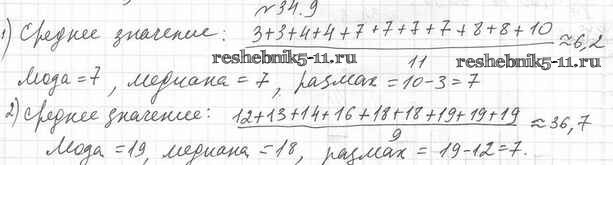 №34.9
1) Среднее значение: 3+3+4+4+7+7+7+7+8+8+10 / 11 ≈6,2
reshebnik5-11.ru reshebnik5-11.ru
Мода=7, медиана=7, размах=10-3=7
2) Среднее значение: 12+13+14+16+18+18+19+19+19 / 9 ≈36,7
Мода=19, медиана=18, размах = 19-12=7.